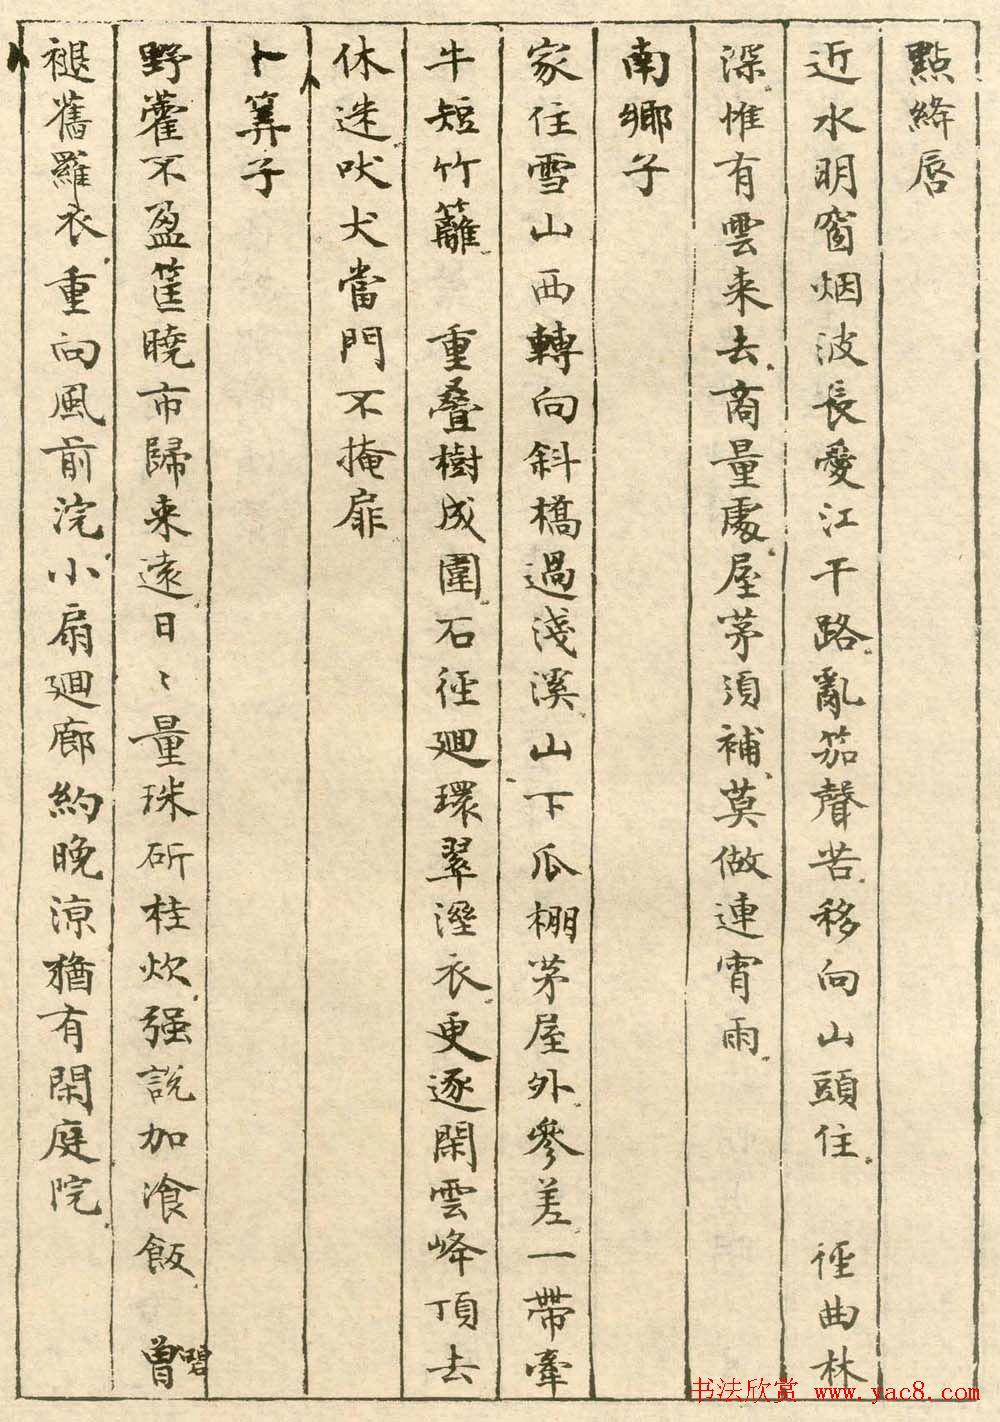 點絳唇
近水明窗烟波長愛江干路亂笳聲苦移向山頭住　徑曲林
深惟有雲来去商量處屋茅須補莫做連宵雨
南鄉子
家住雪山西轉向斜橋過淺溪山下瓜棚茅屋外參差一帶牽
牛短竹籬　重疊樹成圍石徑廻環翠溼衣更逐閑雲峰頂去
休迷吠犬當門不掩扉
卜算子
野藿不盈筐曉市歸来遠日〻量珠斫桂炊强說加飡飯　曾碧
褪舊羅衣重向風前浣小扇廻廊約晚涼猶有閑庭院
书法欣赏 www.yac8.com